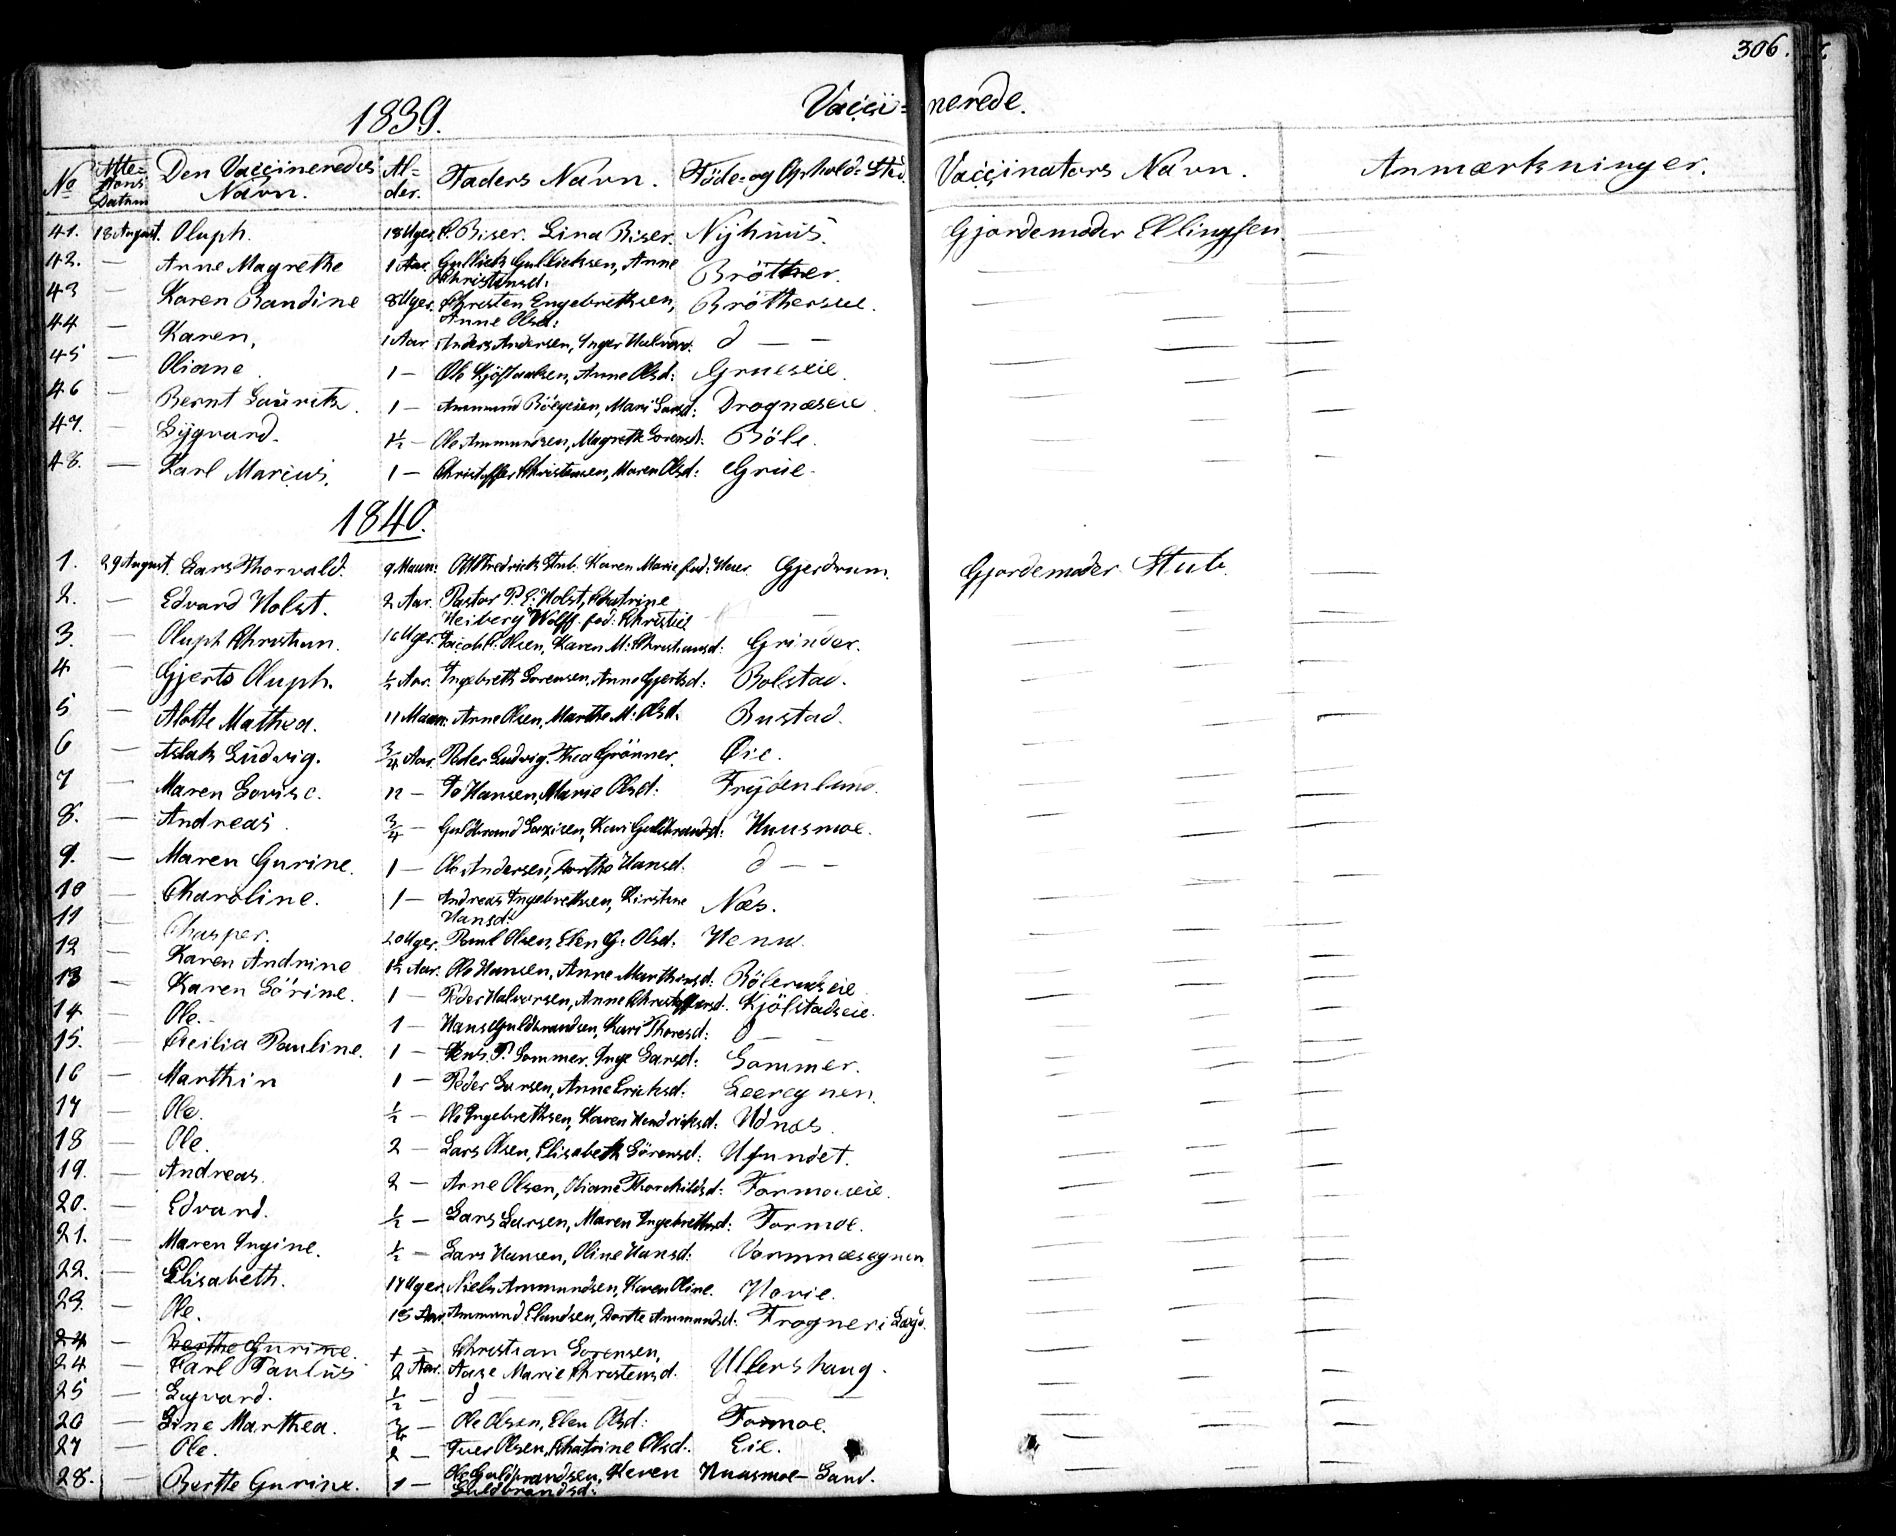 306.
1839. Vacci= nerede.
No Atte= stans Datum Den Vaccineredes Navn. Al= der. Faders Navn. Föde= og Ophold= Sted. Vaccinators Navn. Anmærkninger.
41. 18 August. Oluph. 18 Uger. C. Biser. Lina Biser. Nyhuus. Gjordemoder Ellingsen. —
42. — Anne Magrethe 1 Aar Gullich Gullichsen, Anne Christensd: Bröther. — — —
43 — Karen Randine 8 Uger. Christen Engebrethsen, Anne Olsd: Brötherseie. — — —
44 — Karen, 1 Aar Anders Andersen, Inger Halvors. d — — — — —
45 — Oliane. 1 — Ole Anne Olsd: Grueseie. — — —
46 — Bernt Lauritz. 1 — Ammund Marie Larsd: Drognæseie. — — —
47. — Sygvard. 1½ — Ole Ammundsen, Magrethe Sorensd: Böle. — — —
48. — Karl Marcius. 1 — Christoffer Christensen, Maren Olsd: Grue. — — —
1840.
1. 29 August. Lars Thorvald. 9 Maan: Fredrich Stub. Karen Marie fød: Heuer Gjerdrum. Gjordemoder Stub. —
2. — Edvard Holst. 2 Aar. Pastor P. C. Holst, Chatrine Heiberg Wolff. fød: Christie — — — —
3. — Oluph Christian. 10 Uger. Jacob C. Olsen, Karen M: Christiansd: Grinder. — — —
4. — Gjerts Oluph. ½ Aar. Ingebreth Sorensen, Anne Gjertsd: Bolstad. — — —
5 — Alotte Mathea. 11 Maan: Arne Olsen, Marthe M: Olsd. Bustad. — — —
6 — Aslak Ludvig. ¾ Aar. Peder Ludvig. Thea Grönner. Øie. — — —
7 — Maren Lovise. 12 — Hansen, Marie Olsd: Frydenlund. — — —
8. — Andreas. ¾ — Guldbrand Kari Guldbrandsd: Huusmoe. — — —
9. — Maren Gurine. 1 — Ole Andersen, Dorthe Hansd. d — — — — —
10 — Charoline. 1 — Andreas Ingebrethsen, Kirstine Hansd: Næs. — — —
11 — Chasper. 20 Uger. Poul Olsen, Elen G. Olsd. — — —
12 — Karen Andrine 1½ Aar. Ole Hansen, Anne Marthinsd: Bölerudseie — — —
13 — Karen Sörine. 1 — Peder Halvorsen, Anne Christoffersd. Kjölstadseie. — — —
14. — Ole. 1 — Hans Guldbrandsen, Kari Thoresd: d — — —
15. — Cecilia Pauline. 1 — P. Sommer. Inge Larsd: Sommer. — — —
16 — Marthin 1 — Peder Larsen, Anne Erichsd: Leeregnen. — — —
17 — Ole. ½ — Ole Ingebrethsen, Karen Hendrichsd: Udnæs. — — —
18 — Ole. 2 — Lars Olsen, Elisabeth Sörensd: Ufundet. — — —
19. — Andreas. 2 — Arne Olsen, Oliane Thorchildsd: Formoeseie. — — —
20. — Edvard. ½ — Lars Larsen, Maren Ingebrethsd: Formoe. — — —
21. — Maren Ingine. ½ — Lars Hansen, Oline Hansd: Vormnæsegnen — — —
22. — Elisabeth. 17 Uger. Niels Ammundsen, Karen Oline. Horie. — — —
23. — Ole. Aar Ammund Elandsen, Dorthe Ammundsd: Frogner i — — —
24 — Berthe Gurine. + — Christian Sorensen,
24 — Carl Paulus 2 Aar. Aase Marie Christensd. Ullershaug. — — —
25 — Sygvard. ½ — d — d — — — —
26 — Sine Marthea. ¾ — Ole Olsen, Elen Olsd: Formoe. — — —
27 — Ole. 2 — Iver Olsen, Chatrine Olsd: Eie. — — —
28. — Berthe Gurine. 1 — Ole Guldbrandsen, Karen Guldbrandsd: Huusmoe- Sand. — — —